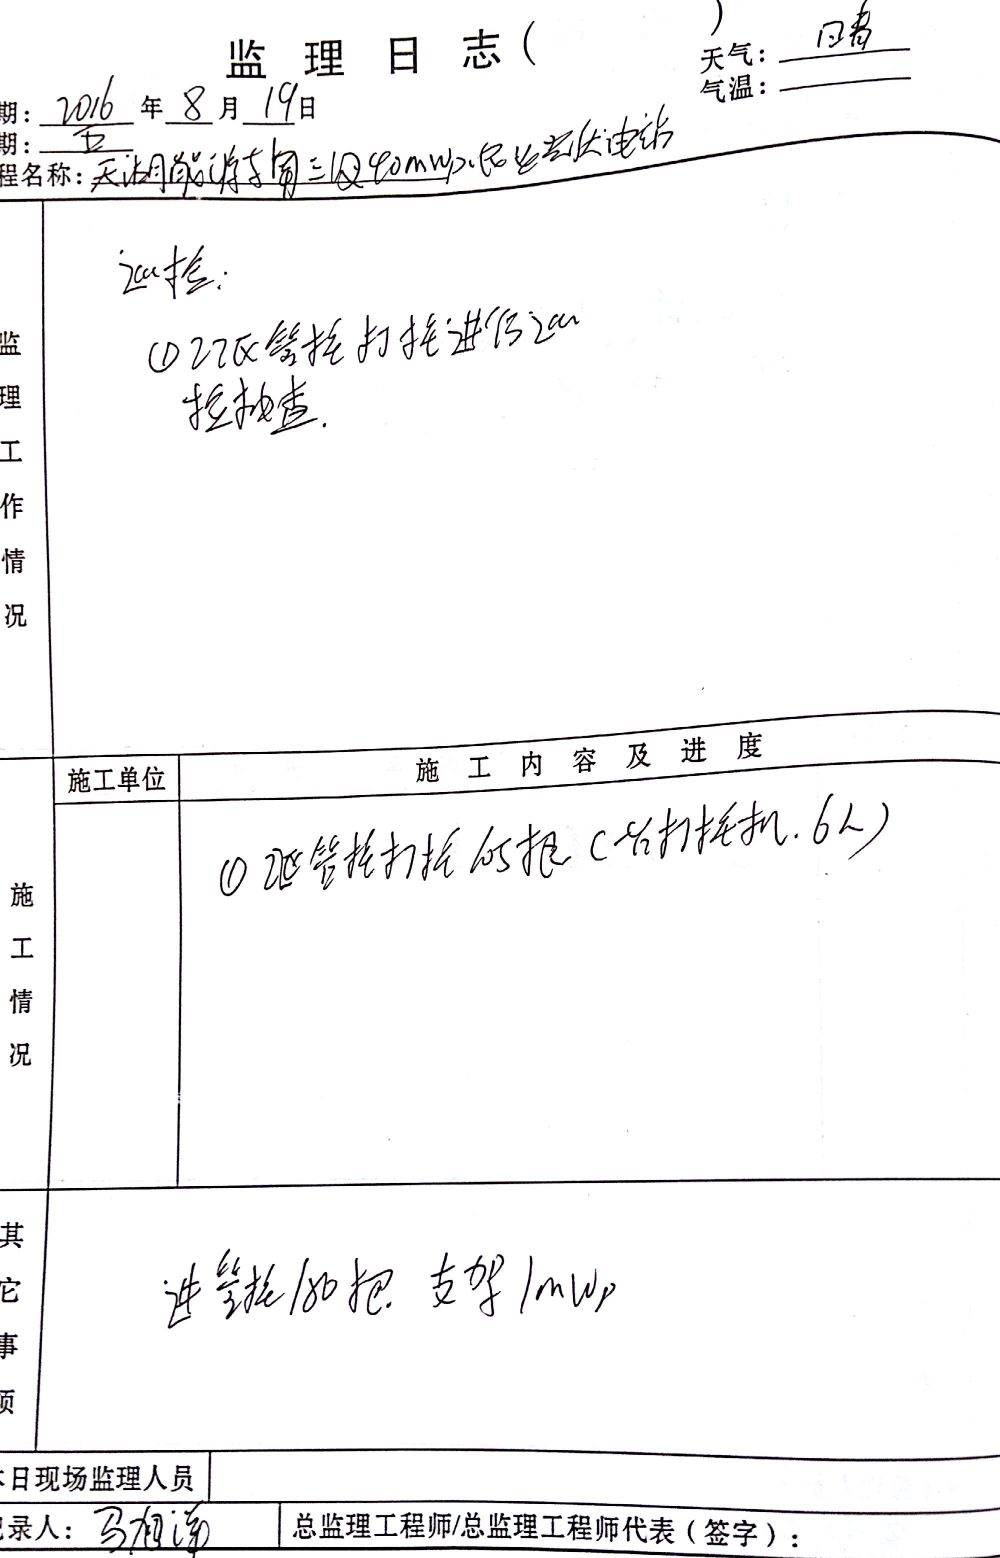 监理日志( )
天气: 晴
气温:
期: 2016 年 8 月 19 日
期: 五
程名称: 天湖能源高三40mwp农业光伏电站
监理工作情况
巡检:
① 22区管桩打桩进行巡
检抽查.
施工单位
施工内容及进度
施工情况
① 22区管桩打桩105根 (台打桩机. 6人)
其它事项
进管桩180根. 支架1mwp
本日现场监理人员
记录人: 马
总监理工程师/总监理工程师代表(签字):